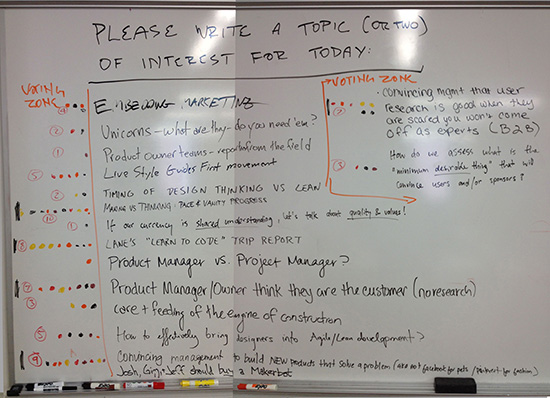 PLEASE WRITE A TOPIC (OR TWO)
OF INTEREST FOR TODAY:
VOTING ZONE
4
EMBEDDING MARKETING
2
Unicorns - what are they - do you need 'em?
1
Product owner teams - report from the field
5
Live Style Guides First movement
2
TIMING OF DESIGN THINKING VS LEAN
10
MAKING VS THINKING: PACE & VANITY PROGRESS
1
If our currency is shared understanding, let's talk about quality & values!
8
LANE'S "LEARN TO CODE" TRIP REPORT
Product Manager vs. Project Manager?
7
Product Manager/Owner think they are the customer (no research)
3
care + feeding of the engine of construction
5
How to effectively bring designers into Agile/Lean development?
9
Convincing management to build NEW products that solve a problem (are not facebook for pets / pinterest for fashion)
Josh, Jeff should buy a Makerbot
VOTING ZONE
7
CONVINCING MGMT THAT USER
RESEARCH IS GOOD WHEN THEY
ARE SCARED YOU WON'T COME
OFF AS EXPERTS (B2B)
3
HOW DO WE ASSESS WHAT IS THE
"MINIMUM DESIRABLE THING" THAT WILL
CONVINCE USERS AND/OR SPONSORS?